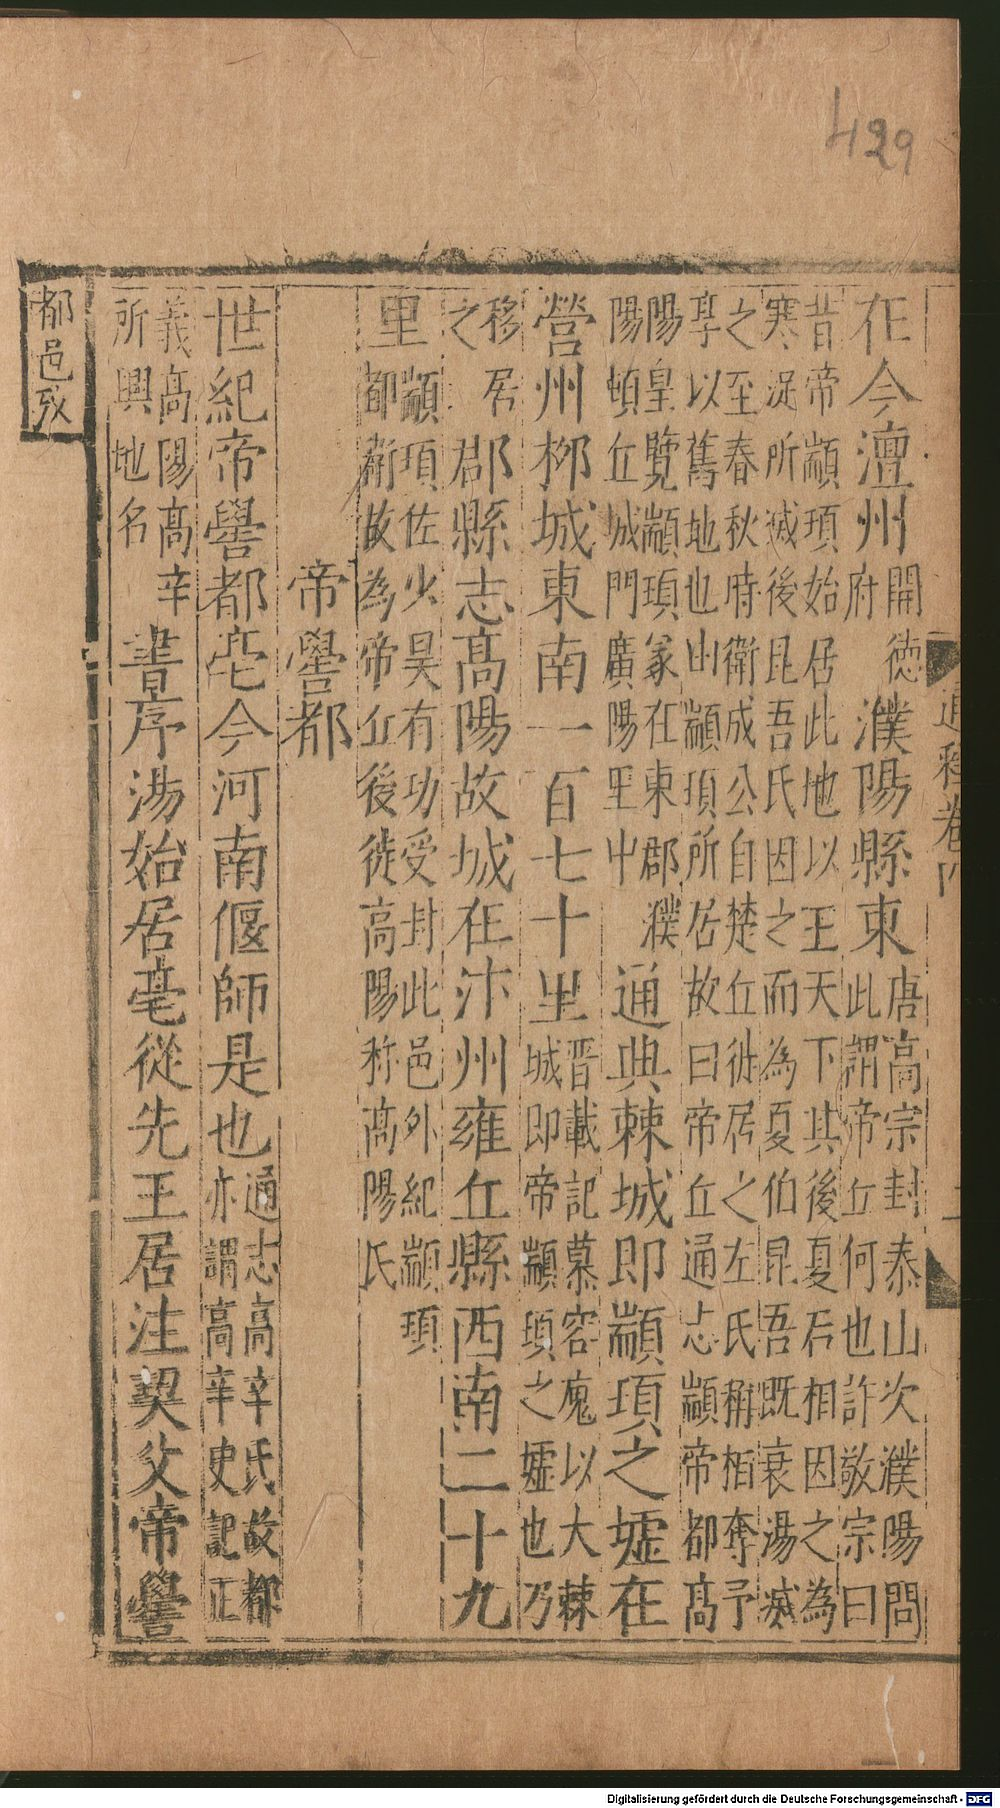 429
通釋卷四
在今澶州開德府濮陽縣東唐高宗封泰山次濮陽問此謂帝丘何也許敬宗曰
昔帝顓頊始居此地以王天下其後夏后相因之為
寒浞所滅後昆吾氏因之而為夏伯昆吾既衰湯滅
之至春秋時衛成公自楚丘徙居之左氏稱相奪予
享以舊地也由顓頊所居故曰帝丘通志顓帝都髙
陽皇覽顓頊冢在東郡濮陽頓丘城門廣陽里中通典棘城即顓頊之墟在
營州桺城東南一百七十里晋載記慕容廆以大棘城即帝顓頊之墟也乃
移居之郡縣志髙陽故城在汴州雍丘縣西南二十九
里顓頊佐少昊有功受封此邑外紀顓頊都衛故為帝丘後徙高陽称高陽氏
帝嚳都
世紀帝嚳都亳今河南偃師是也通志高辛氏故都亦謂高辛史記正
義高陽高辛所興地名書序湯始居亳從先王居注契父帝嚳
都邑攷
Digitalisierung gefördert durch die Deutsche Forschungsgemeinschaft - DFG